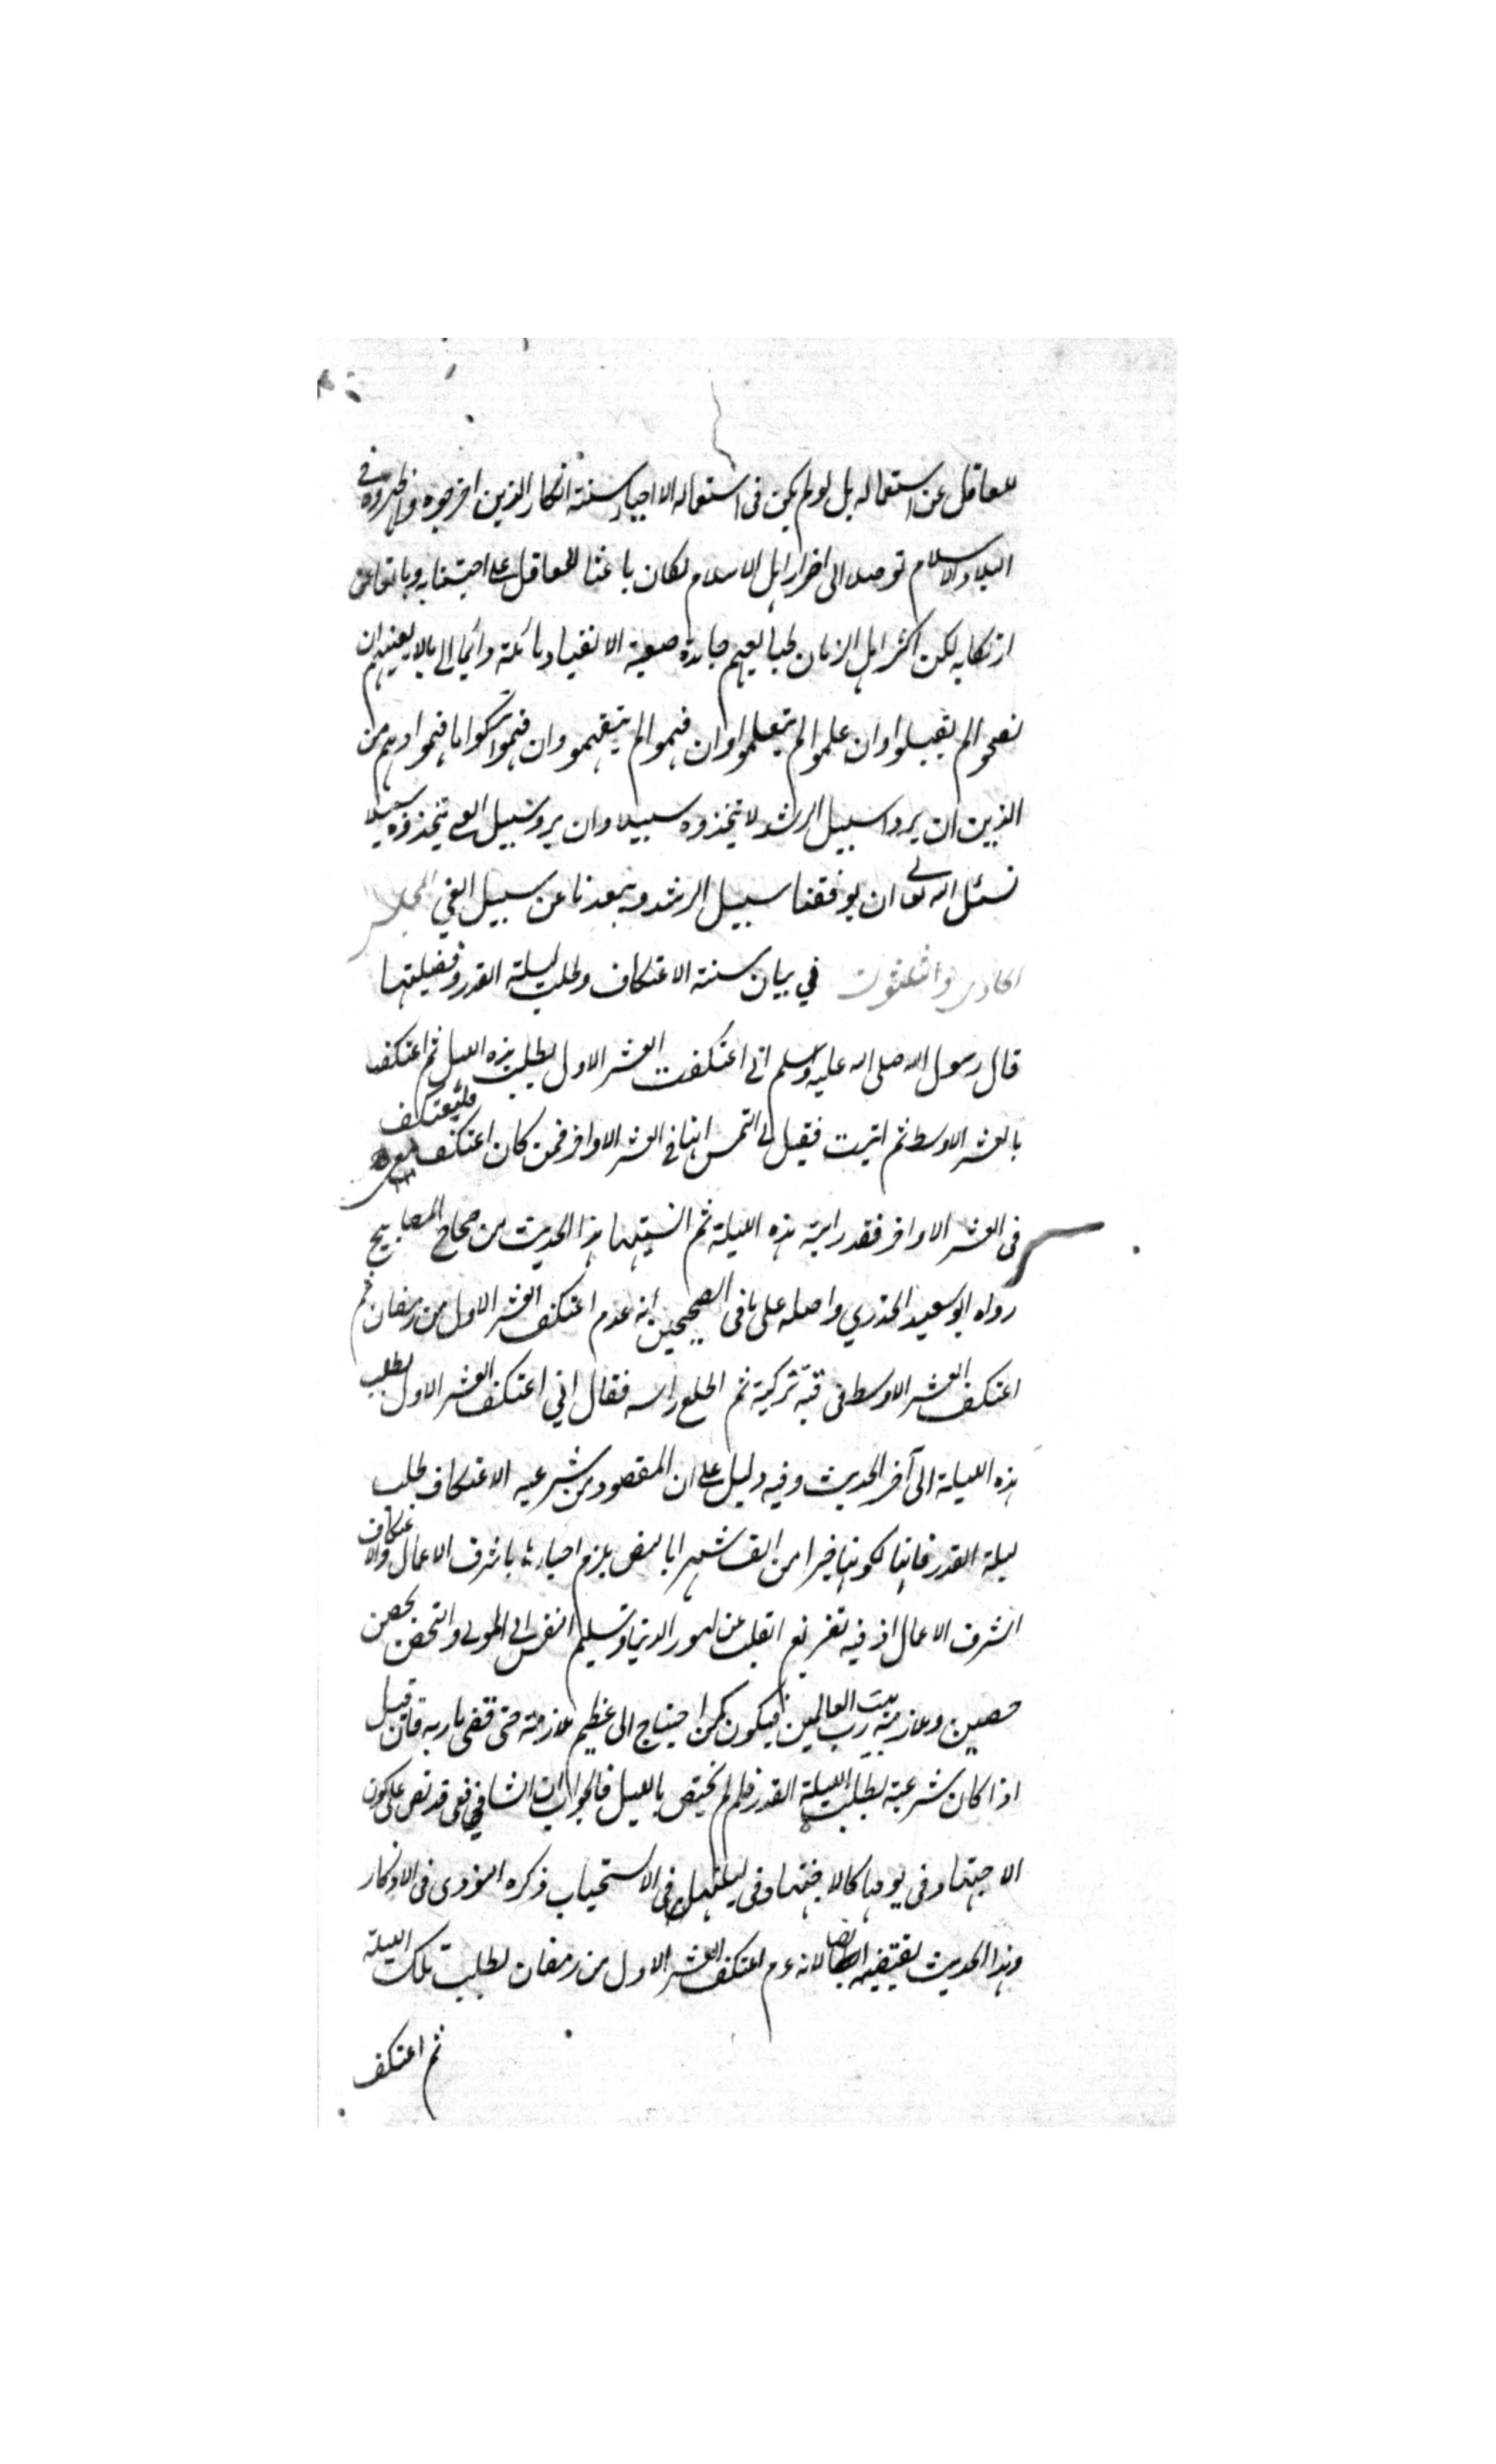 للعاقل عن استعماله بل لو لم يكن فى استعماله الا احياء سنة الكفار الذين اخرجوه واظهروه فى
البلاد الاسلام توصلا الى اضرار اهل الاسلام لكان باعثا للعاقل على اجتنابه وباتعا عن
ارتكابه لكن اكثر اهل الزمان لهم جامدة صعبة الانقياد مائلة دائما الى ما لا يعينهم ان
نصحوا لم يقبلوا وان علموا لم يتعلموا وان فهموا لم يتفهموا وان فهموا تركوا ما فهموا وهم من
الذين ان يروا سبيل الرشد لا يتخذوه سبيلا وان يروا سبيل الغى يتخذوه سبيلا
نسئل الله تعالى ان يوفقنا سبيل الرشد ويبعدنا عن سبيل الغي المجلس
الحادى والثلثون في بيان سنة الاعتكاف وطلب ليلة القدر وفضيلتها
قال رسول الله صلى الله عليه وسلم انى اعتكفت العشر الاول بطلب هذه الليل ثم اعتكفت
بالعشر الاوسط ثم اتيت فقيل لى التمس انها فى العشر الاواخر فمن كان اعتكف معى فليعتكف
فى العشر الاواخر فقد رايت هذه الليلة ثم انسيتها هذا الحديث من صحاح المصابيح
رواه ابو سعيد الخدري واصله على ما فى الصحيحين انه عدم اعتكف العشر الاول من رمضان ثم
اعتكف العشر الاوسط فى قبة تركية ثم اطلع راسه فقال اني اعتكف العشر الاول بطلب
هذه الليلة الى آخر الحديث وفيه دليل على ان المقصود من شرعيه الاعتكاف طلب
ليلة القدر فانها لكونها خيرا من الف شهر يلزم احياءها باشرف الاعمال والاعتكاف
اشرف الاعمال اذ فيه تفريغ القلب عن امور الدنيا وتسليم النفس الى المولى والتحصن بحصن
حصين وملازمة بيت رب العالمين فيكون كمن احتاج الى عظيم ملازمته حتى قضى ماربه فان قيل
اذا كان شرعية بطلب الليلة القدر فلم لم يختص بالليل فالجواب ان الشافعي قد نص على كون
الاجتهاد فى يومها كالاجتهاد فى ليلتها فى الاستحباب ذكره النووى فى الاذكار
وهذا الحديث يقتضيه ايضا لانه عم اعتكف العشر الاول من رمضان بطلب تلك الليلة
ثم اعتكف